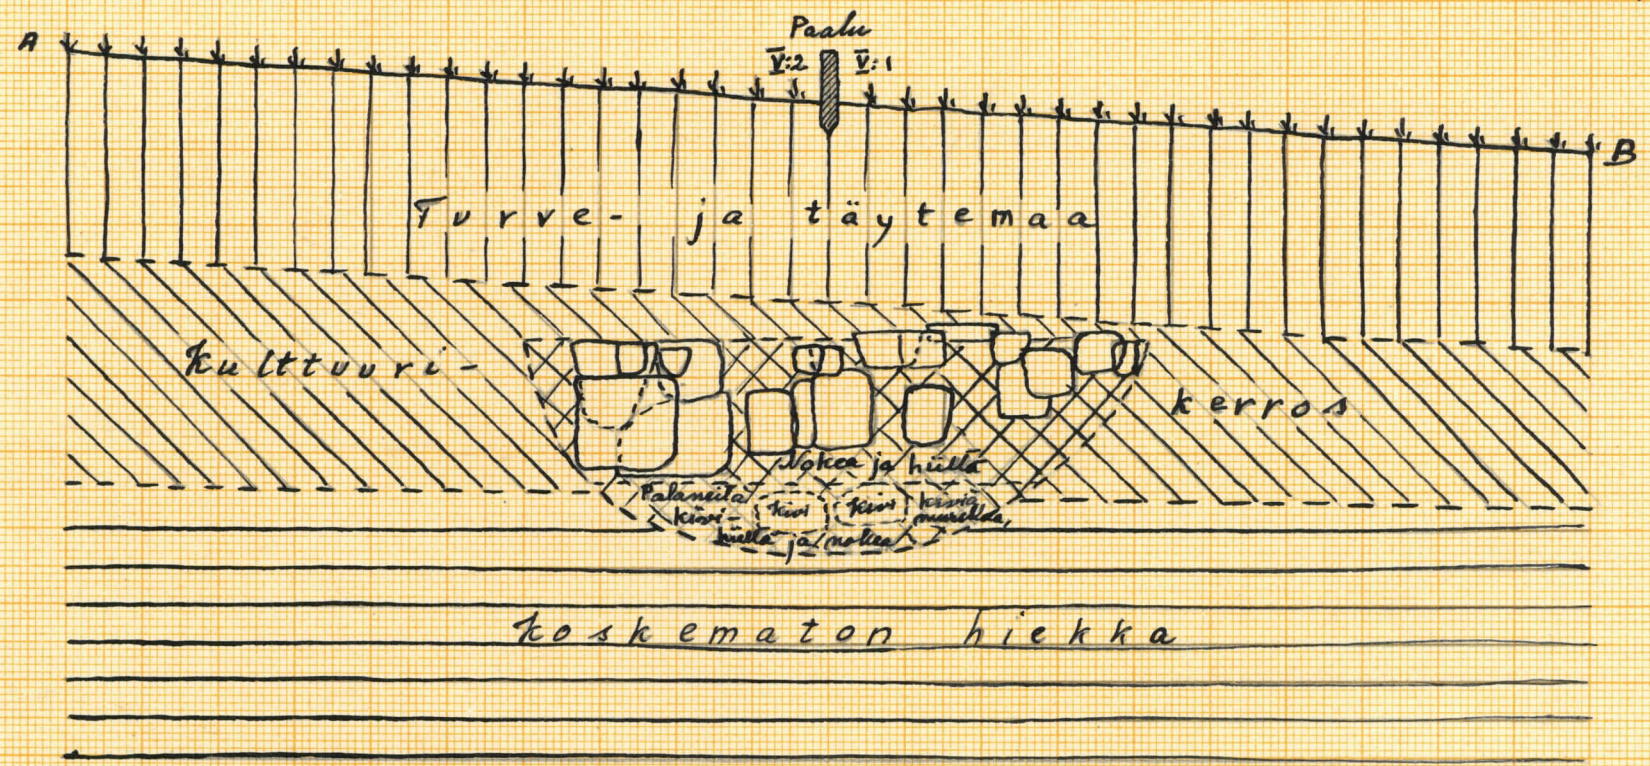 Paalu
A V:2 V:1 B
Turve- ja täytemaa
Kulttuuri-
kerros
Nokea ja hiiltä
Palaneita
kivi kivi kiviä
kivi- murikka,
hiiltä ja nokea
Koskematon hiekka